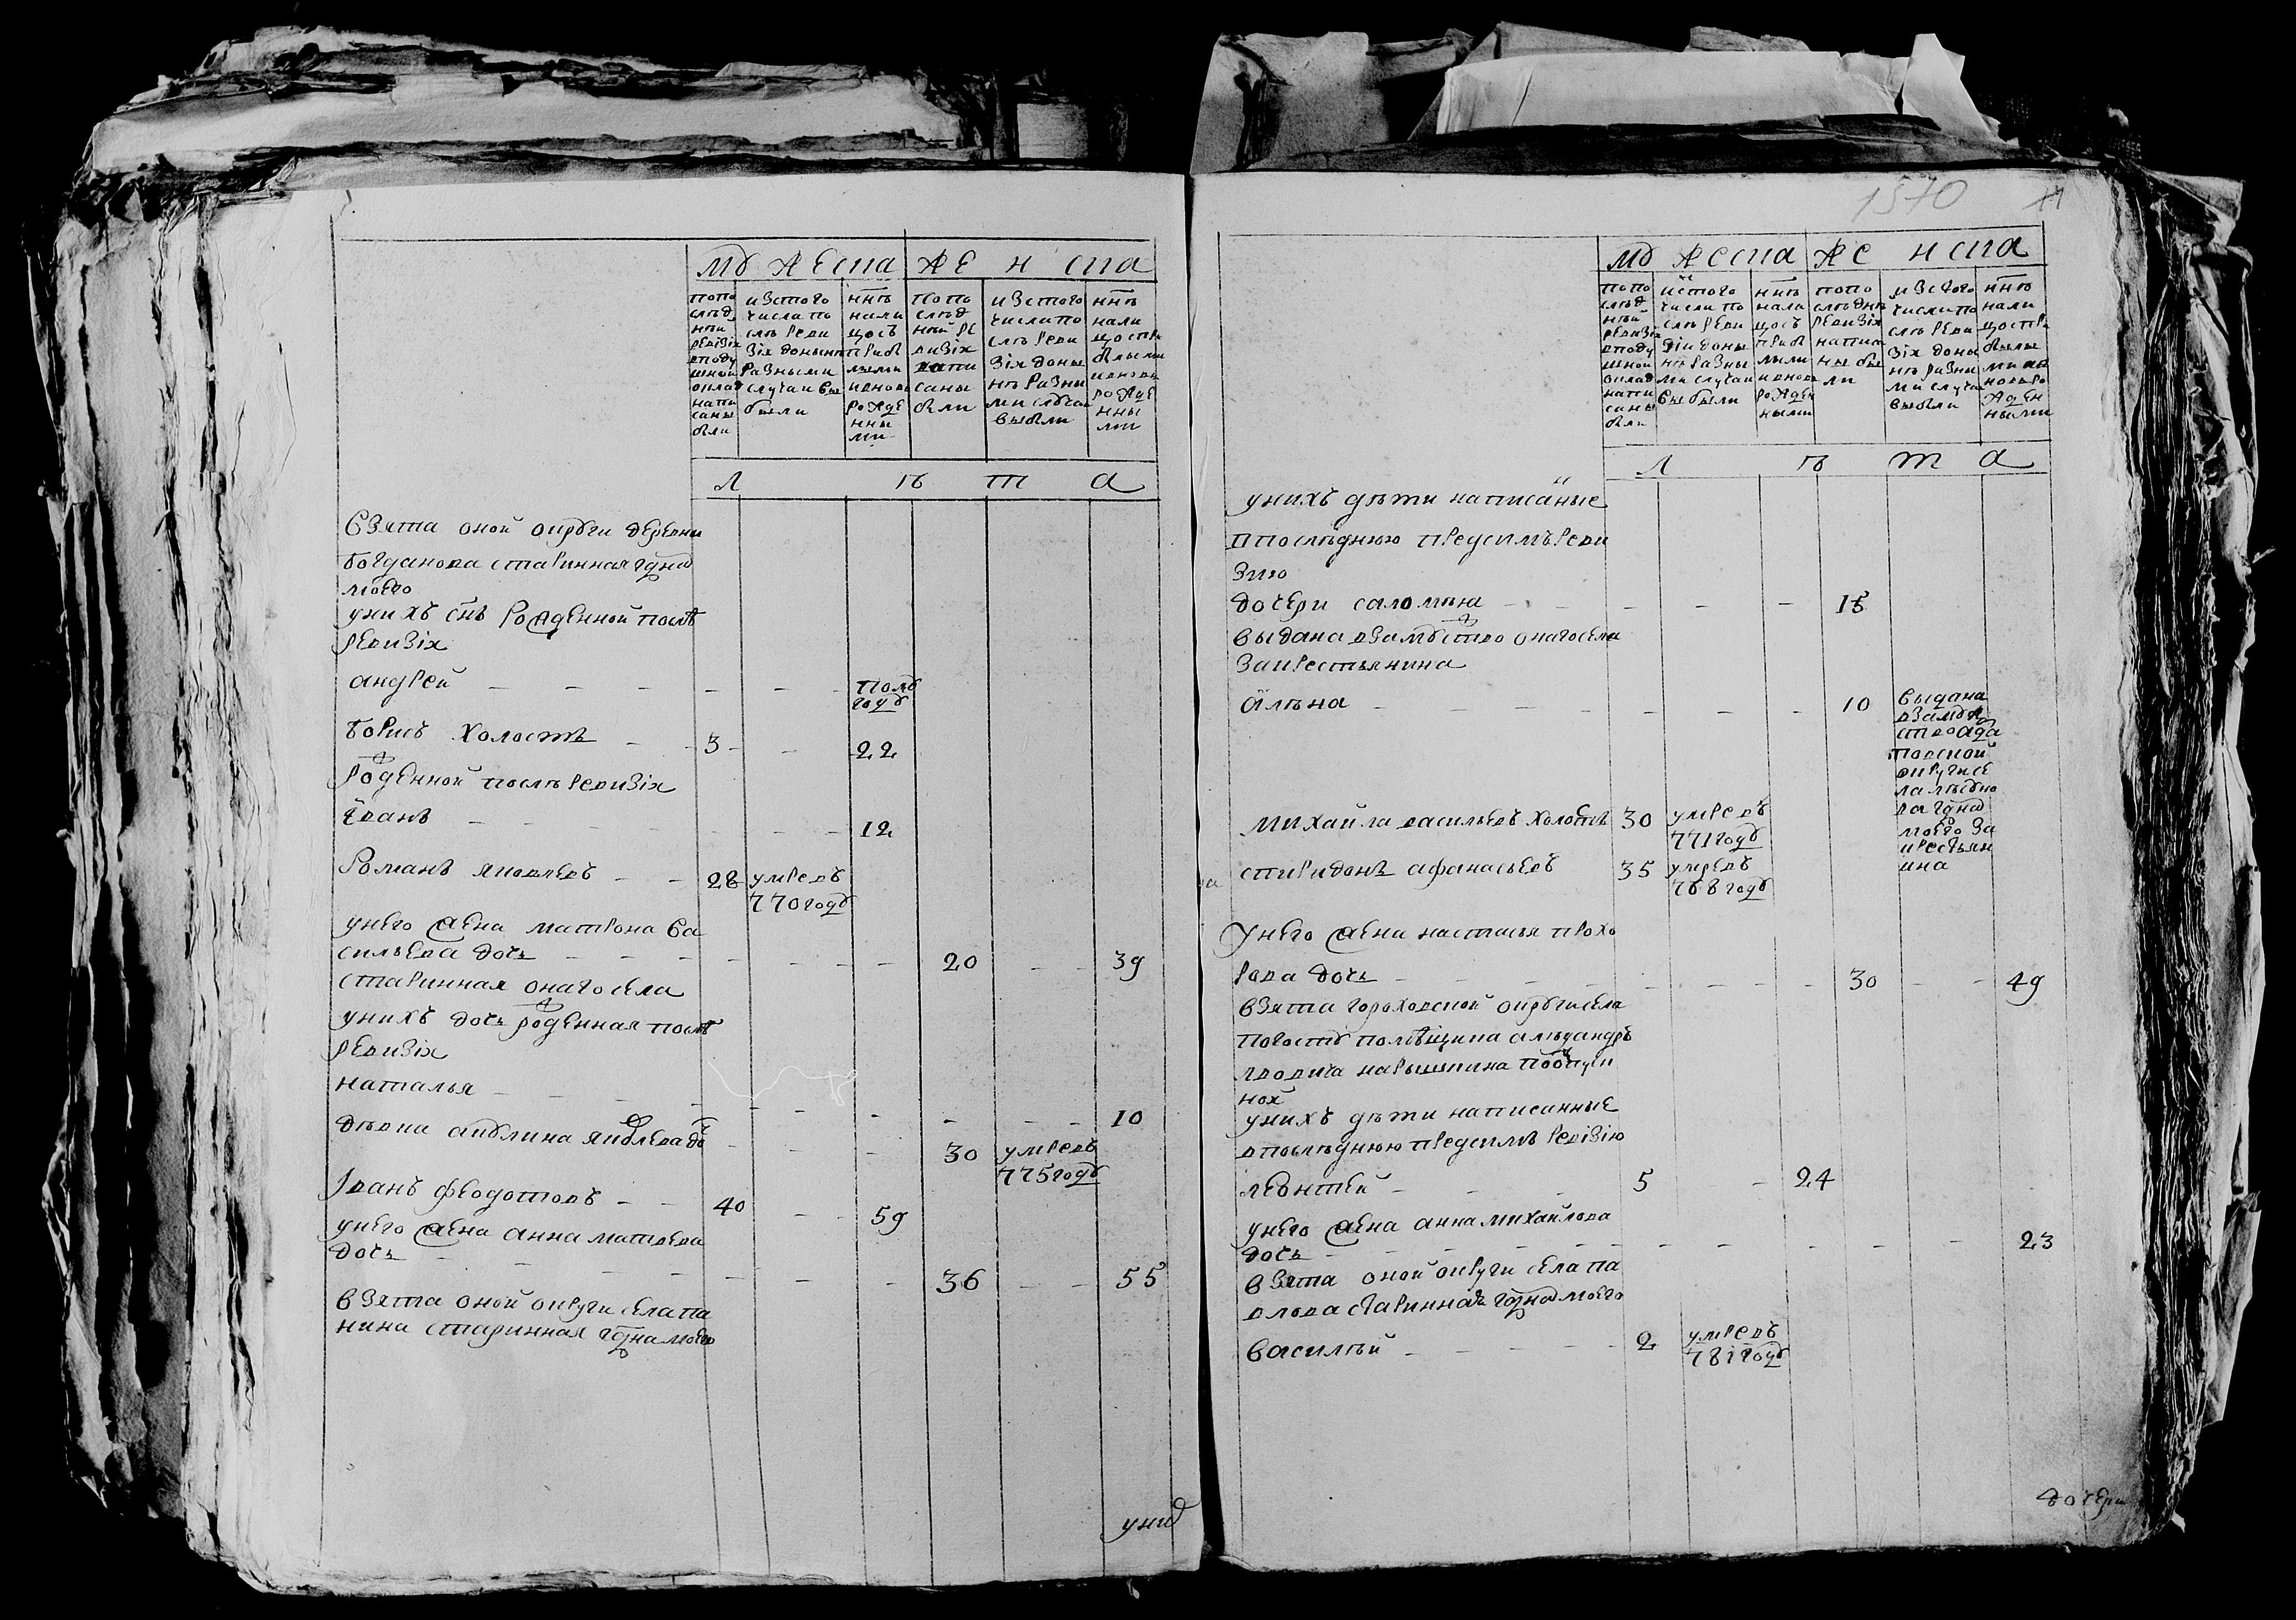 мужеска женска
попо
слѣд
ней
ревизіи
вподу
шной
оклад
напи
саны
были
изтого
числа по
слѣ реви
зіи донынѣ
разными
случаи вы
были
ннѣ
нали
цосъ
прибы
лыми
и вновь
рожде
нны
ми
по по
слѣд
ней ре
визіи
напи
саны
были
изтого
числа по
слѣ реви
зіи доны
нѣ разны
ми случаи
выбыли
ннѣ
нали
цо спри
былыми
и вновь
рожде
нны
ми
л ѣ т а
взята оной округи деревни
богданова старинная гдна
моего
унихъ снъ рожденной послѣ
ревизіи
андрей полу
году
борисъ холостъ 3 22
рожденной послѣ ревизіи
іванъ 12
романъ яковлевъ 28 умревъ
770 году
унего жена матрона ва
сильева дочь 20 39
старинная онаго села
унихъ дочь рожденная послѣ
ревизіи
наталья 10
дѣвка акулина яковлева дочь 30 умревъ
775 году
іванъ феодотовъ 40 59
унего жена анна матвева
дочь 36 55
взята оной округи села па
нина старинная гдна моего
уних
1570
мужеска женска
попо
слѣд
ней
ревизіи
вподу
шной
оклад
напи
саны
были
истого
числа по
слѣ реви
зіи доны
нѣ разны
ми случаи
вы были
ннѣ
нали
цосъ
прибы
лыми
и вновь
рожден
ными
попо
слѣдне
ревизіи
написа
ны бы
ли
изтого
числа по
слѣ реви
зіи доны
нѣ разны
ми случаи
выбыли
ннѣ
нали
цо спри
былы
ми ив
новь ро
жден
ными
л ѣ т а
унихъ дѣти написаные
впослѣднюю предсимъ реви
зию
дочери саломѣа 15
выдана взамужство онаго села
закрестьянина
алѣна 10 выдана
взамуж
ство жда
повской
округи се
ла
гдна
моего за
крестьян
ина
михайла васильевъ холостъ 30 умревъ
771 году
спиридонъ афанасьевъ 35 умревъ
768 году
унего жена настасья прохо
рова дочь 30 49
взята гороховской округи села
погосту помѣщика алѣксандръ
лвовича нарышкина поотпуск
ной
унихъ дѣти написанные
впослѣднюю предсимъ ревізію
левонтей 5 24
унего жена анна михайлова
дочь 23
взята оной округи села па
влова старинная гдна моего
василѣй 2 умревъ
781 году
дочери